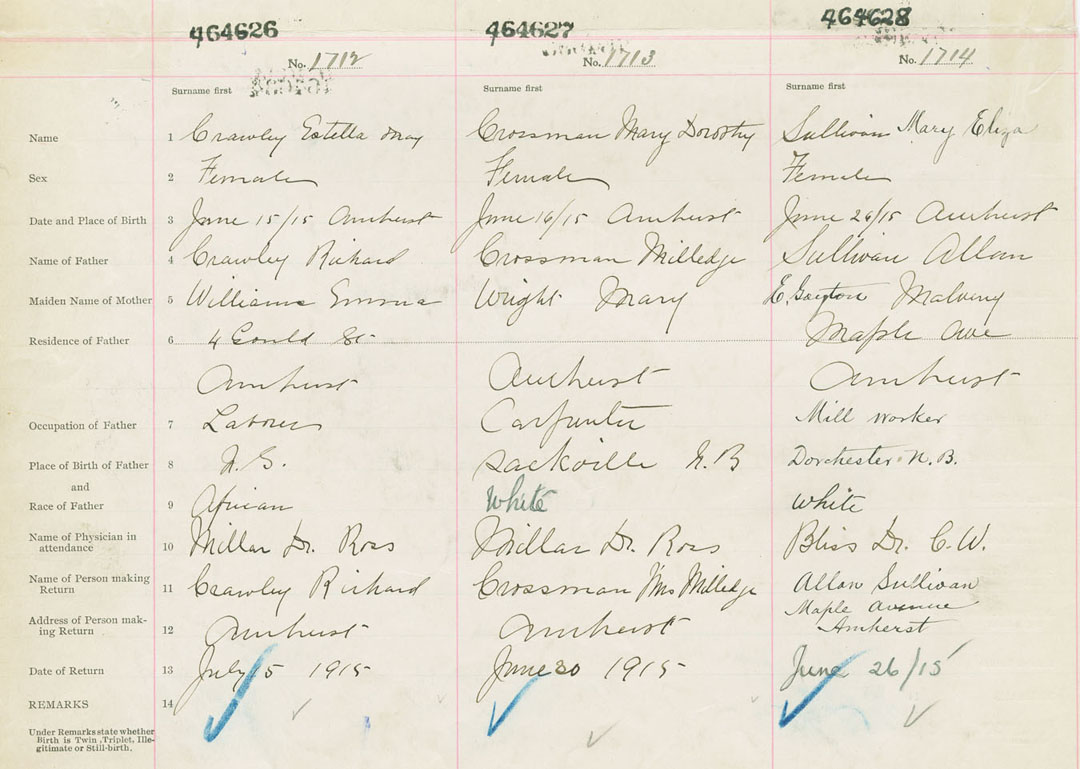 464626 464627 464628
No. 1712 No. 1713 No. 1714
Surname first Surname first Surname first
Name 1 Crawley Estella May Crossman Mary Dorothy Sullivan Mary Eliza
Sex 2 Female Female Female
Date and Place of Birth 3 June 15/15 Amherst June 16/15 Amherst June 26/15 Amherst
Name of Father 4 Crawley Richard Crossman Milledge Sullivan Allan
Maiden Name of Mother 5 Williams Emma Wright Mary
Residence of Father 6 4 Gould St Maple Ave
Amherst Amherst Amherst
Occupation of Father 7 Laborer Carpenter Mill worker
Place of Birth of Father 8 N.S. Sackville N.B Dorchester N.B.
and
Race of Father 9 African White White
Name of Physician in
attendance 10 Millar Dr. Ross Millar Dr. Ross Bliss Dr. C.W.
Name of Person making
Return 11 Crawley Richard Crossman Mrs Milledge Allan Sullivan
Address of Person mak-
ing Return 12 Amherst Amherst Maple Avenue
Amherst
Date of Return 13 July 5 1915 June 30 1915 June 26/15
REMARKS 14
Under Remarks state whether
Birth is Twin, Triplet, Ille-
gitimate or Still-birth.